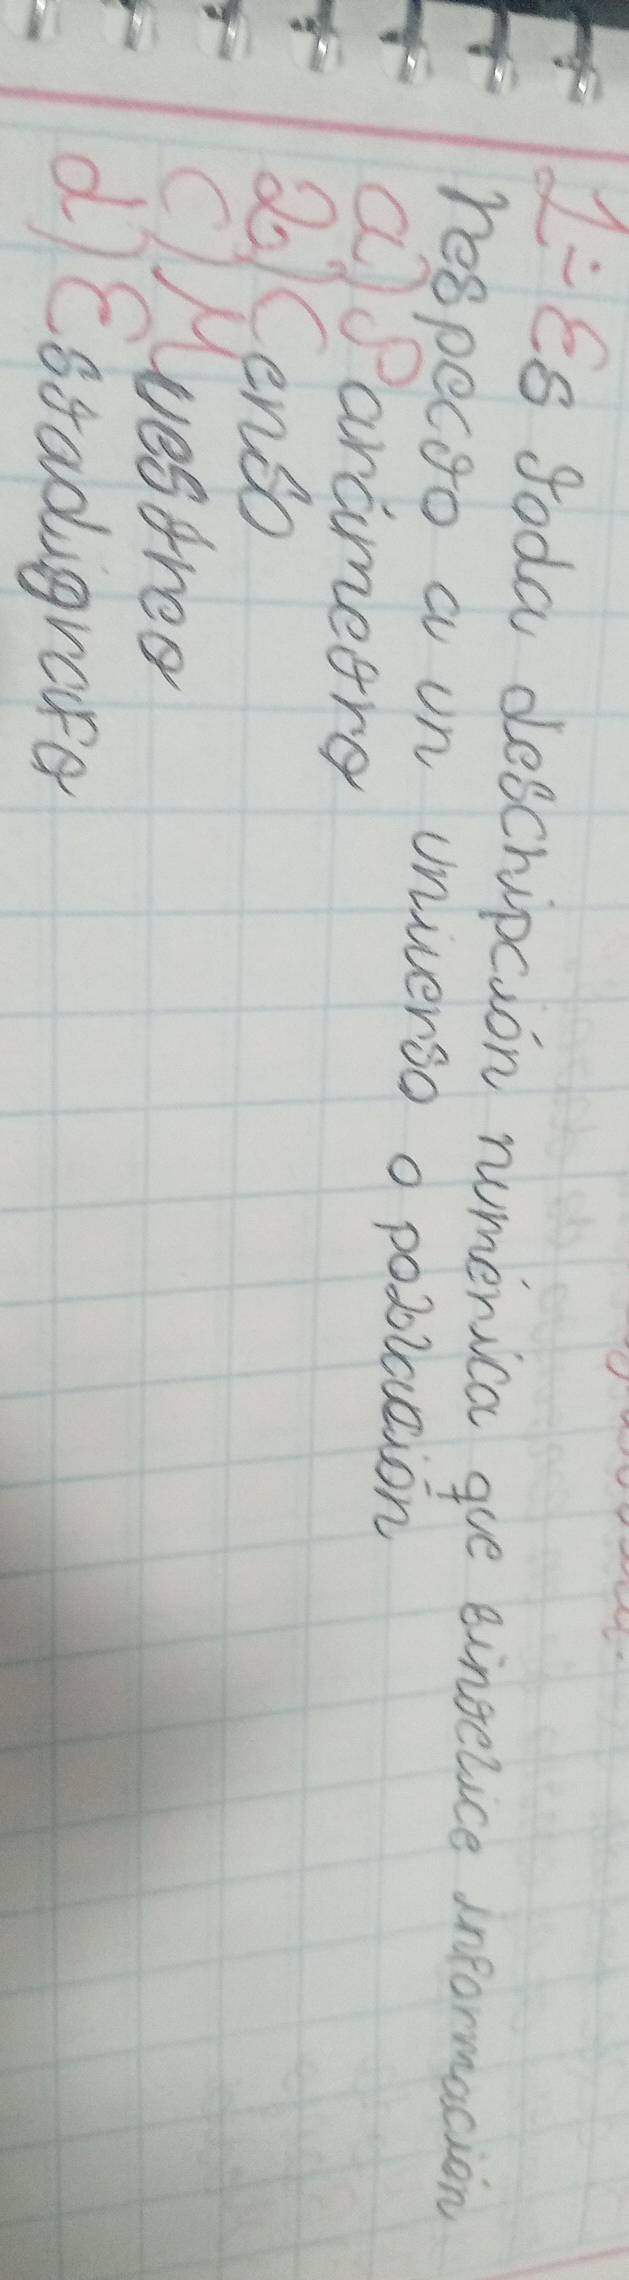 1- Es toda descripción numérica que sintetice información
respecto a un universo o población
a) Parámetro
b) Censo
c) Muestreo
d) Estadígrafo